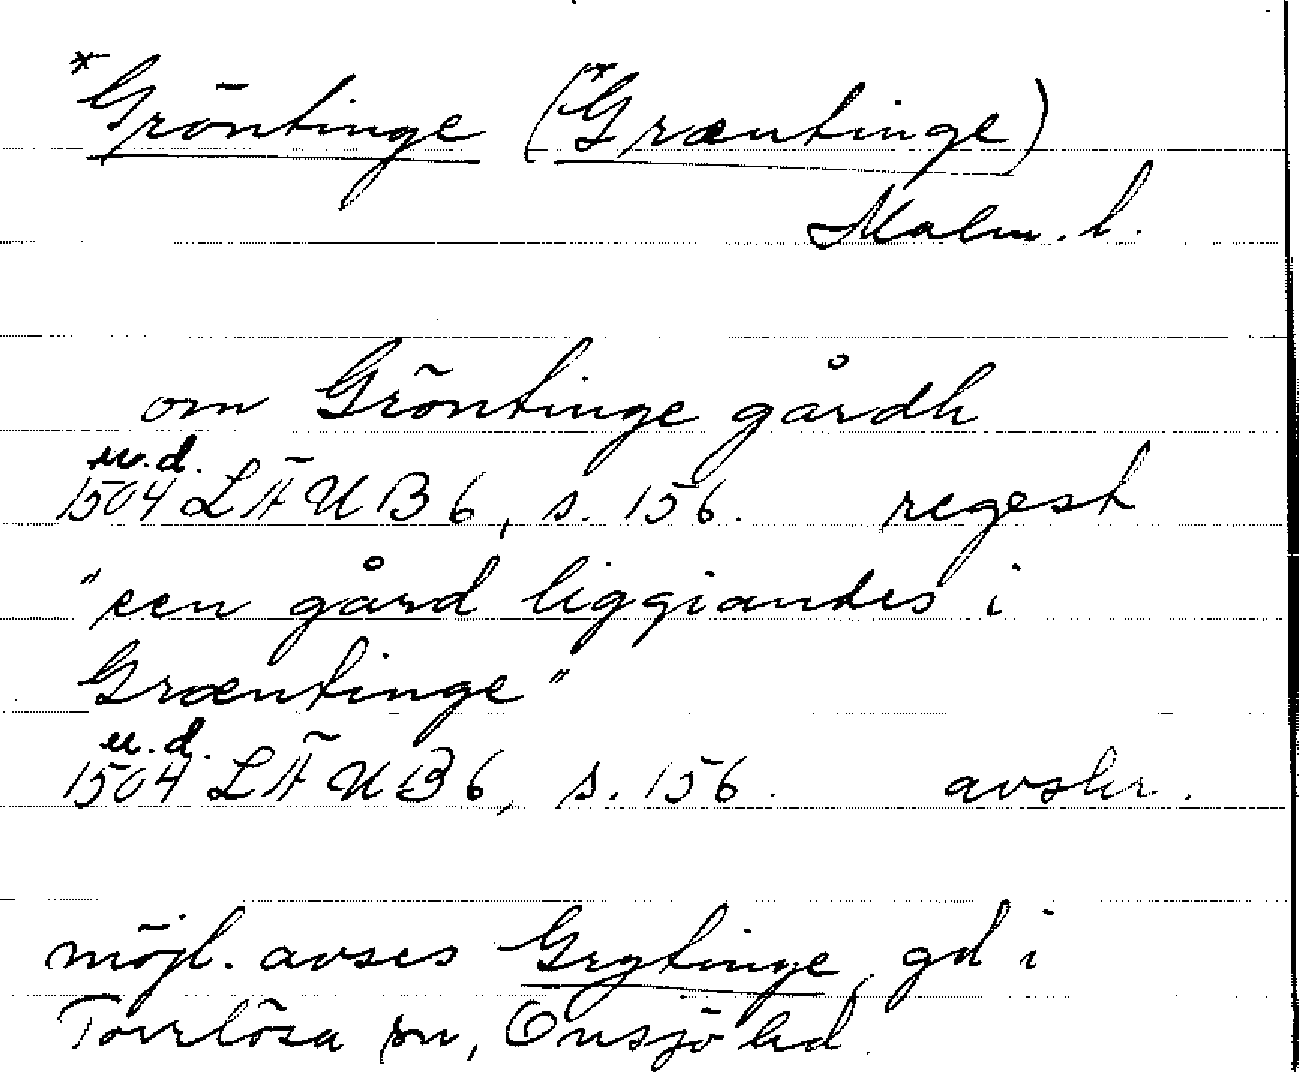 *Gröntinge (*Græntinge)
Malm. l.
om Gröntinge gårdh
u.d.
1504 LÄUB 6, s. 156. regest
"een gård liggiandes i
Græntinge"
u.d.
1504 LÄUB 6, s. 156. avskr.
möjl. avses Grytinge, gd i
Torrlösa sn, Onsjö hd.